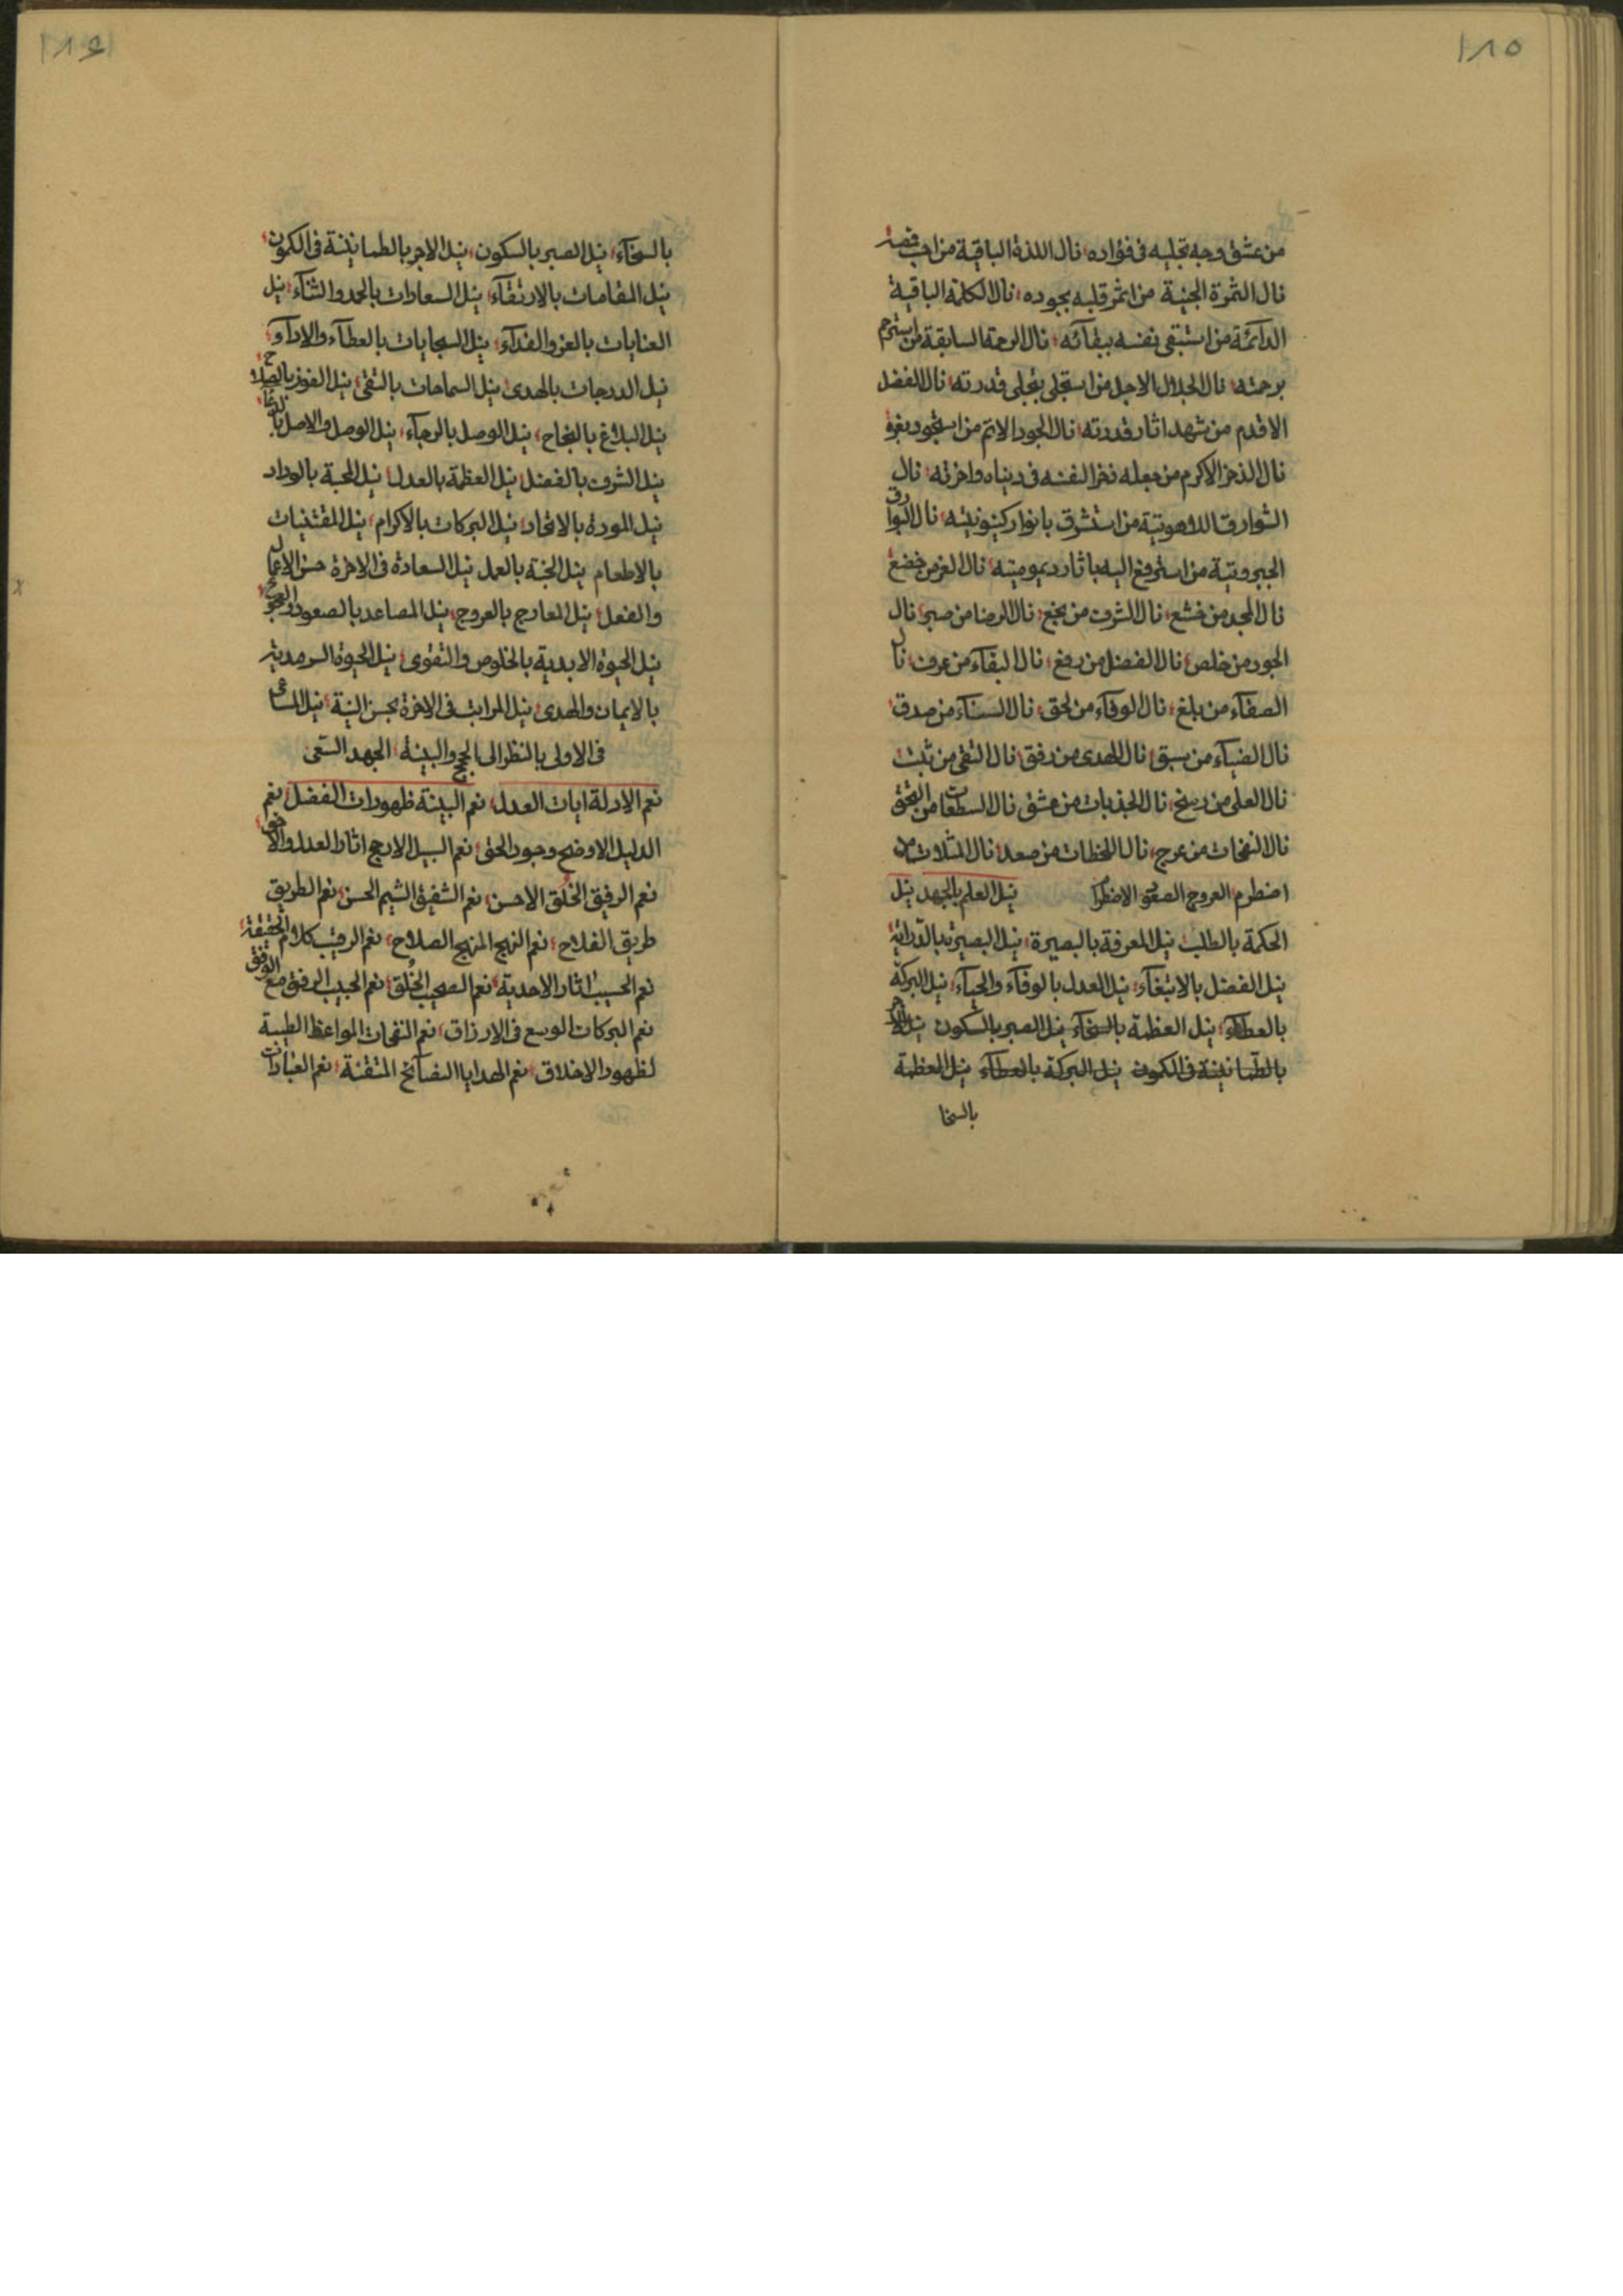 ١٨٥
من عشق وجه تجليه فى فؤاده نال اللذة الباقية من احب
نال الثمرة الجنية من اثمر قلبه بجوده نال الكلمة الباقية
الدآئمة من استبقى نفسه ببقآئه نال الرحمة السابقة من استرحم
برحمته نال الجلال الاجل من استجلى بتجلى قدرته نال الفضل
الاقدم من شهد اثار قدرته نال الجود الاتم من
نال الذخر الاكرم من جعله ذخرا لنفسه فى دنياه واخرته نال
الشوارق اللاهوتية من استشرق بانوار كينونيته نال البوارق
الجبروتية من استرفع اليه باثار ديموميته نال العز من خضع
نال المجد من خشع نال الشرف من بخع نال الرضا من صبر نال
الجود من خلص نال الفضل من رفع نال البقآء من عرف نال
الصفآء من بلغ نال الوفآء من لحق نال السنآء من صدق
نال الضيآء من سبق نال الهدى من رفق نال التقى من ثبت
نال العلى من رسخ نال الجذبات من عشق نال السطعات من
نال النفحات من عرج نال اللحظات من صعد نال
اضطرم العروج الصعود الاضطرام نيل العلم بالجهد نيل
الحكمة بالطلب نيل المعرفة بالبصيرة نيل البصيرة بالدراية
نيل الفضل بالابتغآء نيل العدل بالوفآء والحيآء نيل البركة
بالعطآء نيل العظمة بالسخآء نيل الصبر بالسكون نيل الاجر
بالطمانينة فى الكمون نيل البركة بالعطآء نيل العظمة
بالسخا
١٨٤
بالسخآء نيل الصبر بالسكون نيل الاجر بالطمانينة فى الكمون
نيل المقامات بالارتقآء نيل السعادات بالحمد والثنآء نيل
العنايات بالعز والفدآء نيل السجايات بالعطآء والادآء
نيل الدرجات بالهدى نيل السماحات بالتقى نيل الفوز بالصلاح
نيل البلاغ بالنجاح نيل الوصل بالرجآء نيل الوصل والاصل
نيل الشرف بالفضل نيل العظمة بالعدل نيل المحبة بالوداد
نيل المودة بالاتحاد نيل البركات بالاكرام نيل المقتنيات
بالاطعام نيل الجنة بالعمل نيل السعادة فى الاخرة حسن الاعمال
والفعل نيل المعارج بالعروج نيل المصاعد بالصعود والعروج
نيل الحيوة الابدية بالخلوص والتقوى نيل الحيوة السرمدية
بالايمان والهدى نيل المراتب فى الاخرة بحسن النية نيل المساعى
فى الاولى بالنظر الى الحجج والبينة الجهد السعى
نعم الادلة ايات العدل نعم البينة ظهورات الفضل نعم
الدليل الاوضح وجود الحق نعم السبيل الارجح اثار العدل والاحق
نعم الرفيق الخلق الاحسن نعم الشفيق الشيم الحسن نعم الطريق
طريق الفلاح نعم النهج المنهج الصلاح نعم الرقيب كلام الحقيقة
نعم الحسيب اثار الاحدية نعم الصحيب الخُلق نعم الحبيب الرفق مع الوفق
نعم البركات الوسع فى الارزاق نعم النفحات المواعظ الطيبة
لظهور الاخلاق نعم الهدايا النصآئح المتقنة نعم العبادات